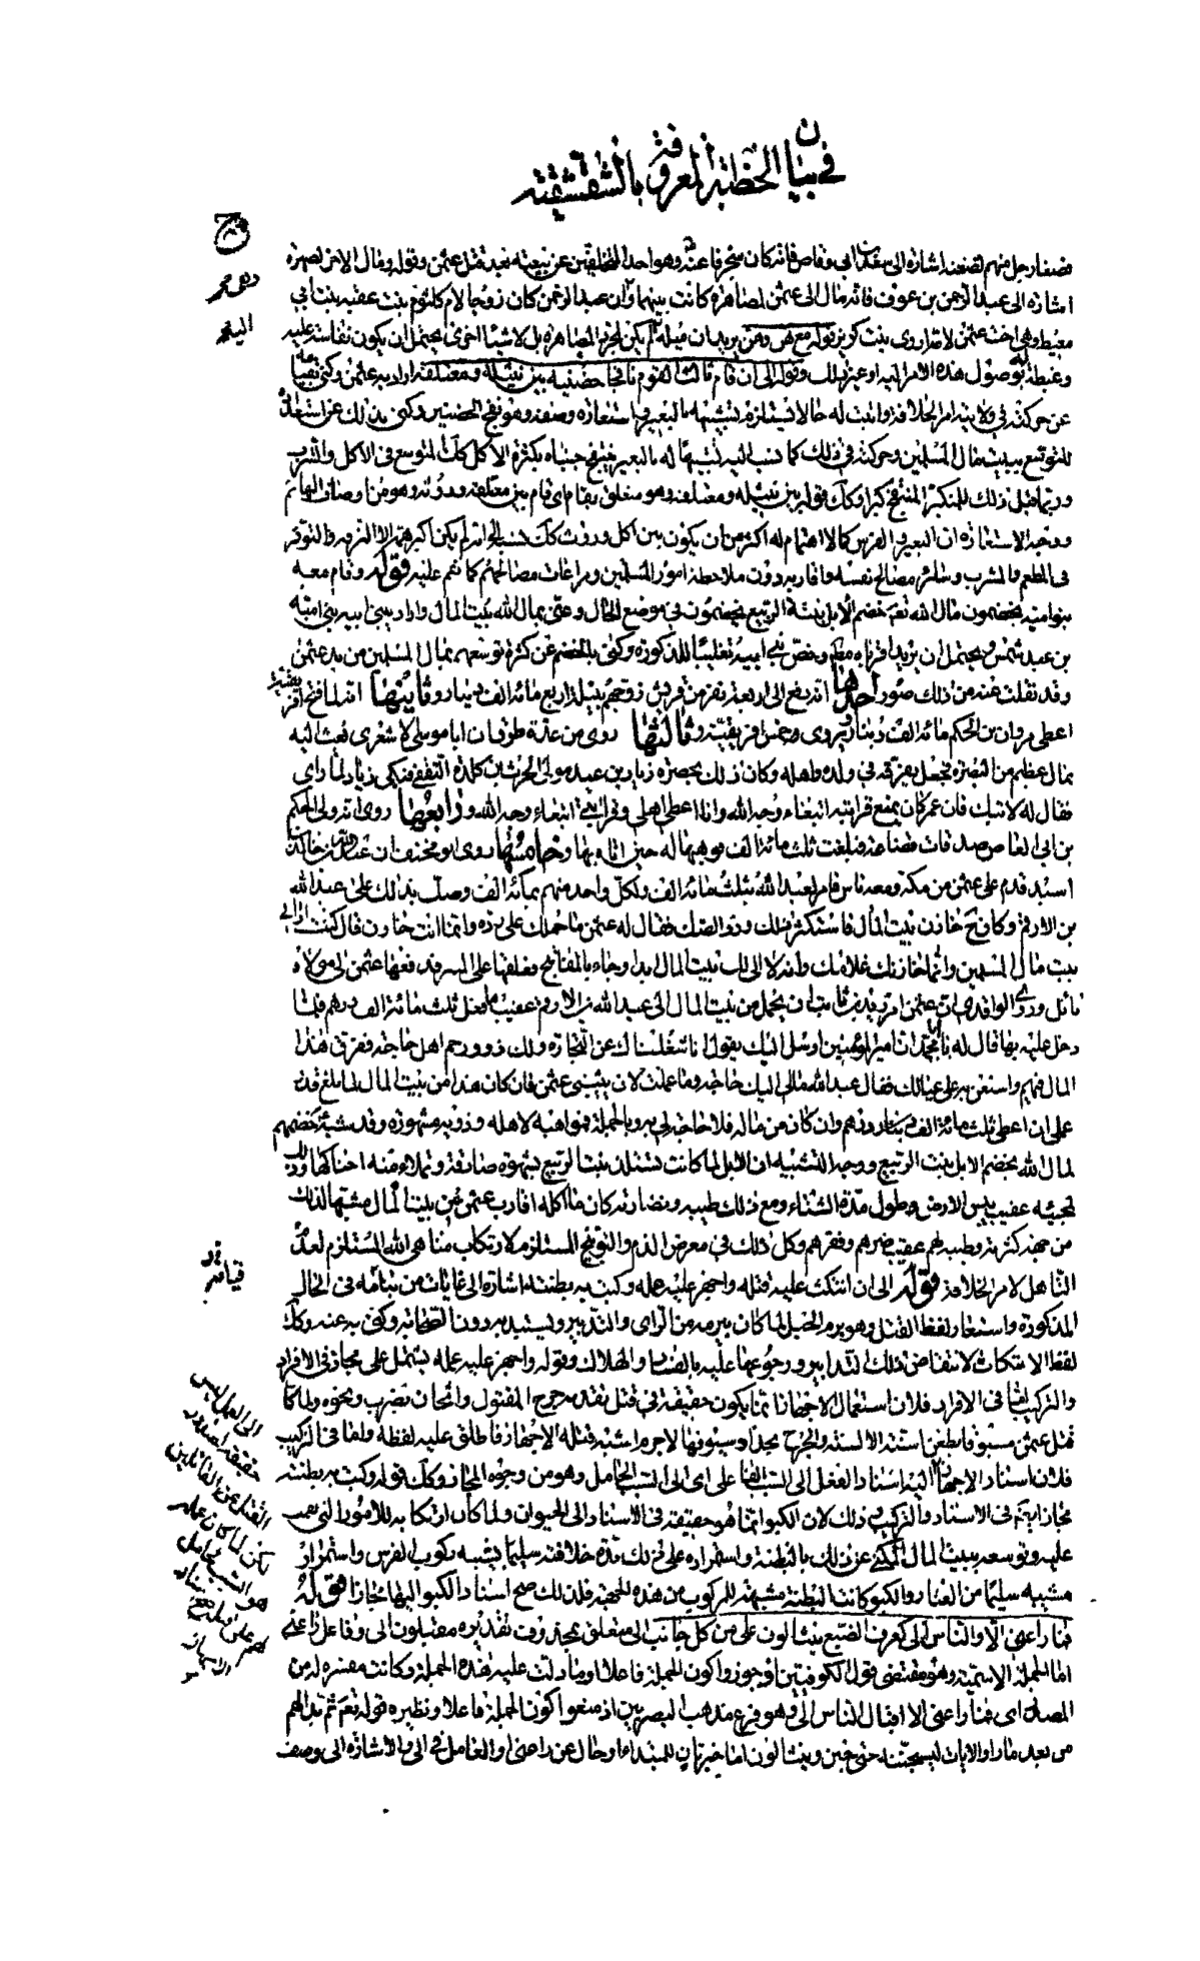 في بيان الخطبة المعروفة بالشقشقية
فصغا رجل منهم لضغنه اشارة الى سعد بن ابي وقاص فانه كان منحرفا عنه وهو احد المتخلفين عن بيعته بعد قتل عثمن وقوله ومال الاخر لصهره
اشارة الى عبد الرحمن بن عوف فانه مال الى عثمن لمصاهرة كانت بينهما وان عبد الرحمن كان زوجا لام كلثوم بنت عقبة بنت ابي
معيط وهي اخت عثمن لامه اروى بنت كريز قوله مع هن وهن يريد ان ميله لم يكن لمجرد المصاهرة بل لاشياء اخرى يحتمل ان يكون نفاسة عليه
وغبطة له بوصول هذه الامر اليه او غير ذلك وقوله الى ان قام ثالث القوم نافجا حضنيه بين نثيله ومعتلفه اراد به عثمن وكنى بقيامه
عن حركته في ولايته امر الخلافة واثبت له حالا يستلزم تشبيهه بالبعير واستعارة وصفه وهو نفج الحضنين وكنى بذلك عن استعداده
للتوسع ببيت مال المسلمين وحركته في ذلك كما نسب اليه تشبيها له بالبعير ينتفج جنباه بكثرة الاكل كك المتوسع في الاكل والشرب
وربما قيل ذلك للمتكبر المنتفج كبرا وكك قوله بين نثيله ومعتلفه وهو متعلق بقام اي قام بين معتلفه وروثه وهو من اوصاف البهائم
ووجه الاستعارة ان البعير والفرس كما لا اهتمام له اكثر من ان يكون بين اكل وروث كك نسبه الى انه لم يكن اكبر همه الا الترفه والتوفر
في المطعم والمشرب وسائر مصالح نفسه واقاربه دون ملاحظة امور المسلمين ومراعات مصالحهم كما نقم عليه قوله وقام معه
بنو اميه يخضمون مال الله تعم خضم الابل نبتة الربيع يخضمون في موضع الحال وعنى بمال الله بيت المال واراد ببني ابيه بني امية
بن عبد شمس ويحتمل ان يريد اقرباه مطلقا وخص بني ابيه تغليبا للذكورة وكنى بالخضم عن كثرة توسعهم بمال المسلمين من يد عثمن
وقد نقلت عنه من ذلك صور احدها انه دفع الى اربعة نفر من قريش زوجهم ببناته اربع مائة الف دينار وثانيها انه لما فتح افريقية
اعطى مروان بن الحكم مائة الف دينار ويروى وخمس افريقية وثالثها روى من عدة طرق ان ابا موسى الاشعري بعث اليه
بمال عظيم من البصرة فجعل يفرقه في ولده واهله وكان ذلك بحضرة زياد بن عبيد مولى الحرث بن كلدة الثقفي فبكى زياد لما راى
فقال له لا تبك فان عمر كان يمنع قرابته ابتغاء وجه الله وانا اعطي اهلي وقرابتي ابتغاء وجه الله ورابعها روى انه ولى الحكم
بن ابي العاص صدقات قضاعة فبلغت ثلث مائة الف فوهبها له حين اتاه بها وخامسها روى ابو مخنف ان عبد الله بن خالد بن
اسيد قدم على عثمن من مكة ومعه ناس فامر لعبد الله بثلث مائة الف ولكل واحد منهم بمائة الف وصك بذلك على عبد الله
بن الارقم وكان ح خازن بيت المال فاستكثره ذلك ورد الصك فقال له عثمن ما حملك على رده وانما انت خازن فقال كنت اراني
بيت مال المسلمين وانما خازنك غلامك والله لا الي لك بيت المال ابدا وجاء بالمفاتيح فعلقها على المنبر فدفعها عثمن الى مولاه
نائل وروى الواقدي ان عثمن امر زيد بن ثابت ان يحمل من بيت المال الى عبد الله بن الارقم عقيب هذا الفعل ثلث مائة الف درهم فلما
دخل عليه بها قال له يا ابا محمد ان امير المؤمنين ارسل اليك يقول انا شغلناك عن التجارة ولك ذوو رحم اهل حاجة ففرق هذا
المال فيهم واستعن به على عيالك فقال عبد الله مالي اليك حاجة وما عملت لان يثيبني عثمن فان كان هذا من بيت المال لما بلغ قدر
عملي ان اعطى ثلث مائة الف درهم وان كان من ماله فلا حاجة لي به وبالجملة فمواهبه لاهله وذويه مشهورة وقد شبه خضمهم
لمال الله بخضم الابل نبت الربيع ووجه التشبيه ان الابل لما كانت تستلذ نبت الربيع بشهوة صادقة وتملاء منه احناكها وذلك
لمجيئه عقيب يبس الارض وطول مدة الشتاء ومع ذلك طيبه ونضارته كان ما اكله اقارب عثمن من بيت المال مشبها لذلك
من جهة كثرته وطيبه لهم عقيب ضرهم وفقرهم وكل ذلك في معرض الذم والتوبيخ المستلزم لارتكاب مناهي الله المستلزم لعدم
التاهل لامر الخلافة قوله الى ان انتكث عليه فتله واجهز عليه عمله وكبت به بطنته اشارة الى غايات من قيامه في الحال
المذكورة واستعار لفظ الفتل وهو برم الحبل لما كان يبرمه من الراى والتدبير ويستبد به دون الصحابة وكنى به عنه وكك
لفظ الانتكاث لانتقاض ذلك التدابير ورجوعها عليه بالفساد والهلاك وقوله واجهز عليه عمله يشتمل على مجاز في الافراد
والتركيب اما في الافراد فلان استعمال الاجهاز انما يكون حقيقة في قتل تقدمه جرح المقتول واثخان بضرب ونحوه ولما كان
قتل عثمن مسبوقا بطعن اسنة الالسنة والجرح بحد اسيوفها لا جرم اشبه قتله الاجهاز فاطلق عليه لفظه واما في التركيب
فلان اسناد الاجهاز اليه اسناد الفعل الى السبب الفاعلي اي الى السبب الحامل وهو من وجوه المجاز وكك قوله وكبت به بطنته
مجاز ايضا في الاسناد والتركيب وذلك لان الكبو انما هو حقيقة في الاسناد الى الحيوان ولما كان ارتكابه للامور التي نقمت
عليه وتوسعه ببيت المال المكنى عن ذلك بالبطنة واستمراره على ذلك مدة خلافته سليما يشبه ركوب الفرس واستمرار
مشيه سليما من العثار والكبو كانت البطنة مشبهة للمركوب من هذه الجهة فلذلك صح اسناد الكبو اليها مجازا قوله
فما راعني الا والناس الى كعرف الضبع ينثالون علي من كل جانب الى متعلق بمحذوف تقديره مقبلون الى وفاعل راعني
اما الجملة الاسمية وهو مقتضى قول الكوفيين اذ جوزوا كون الجملة فاعلا او ما دلت عليه هذه الجملة وكانت مفسرة له من
المصدر اي فما راعني الا اقبال الناس الي وهو فرع مذهب البصريين اذ منعوا كون الجملة فاعلا ونظيره قوله تعم ثم بدا لهم
من بعد ما راوا الايات ليسجننه حتى حين وينثالون اما خبر ثان للمبتداء او حال عن راعني او العامل في الى والاشارة الى وصف